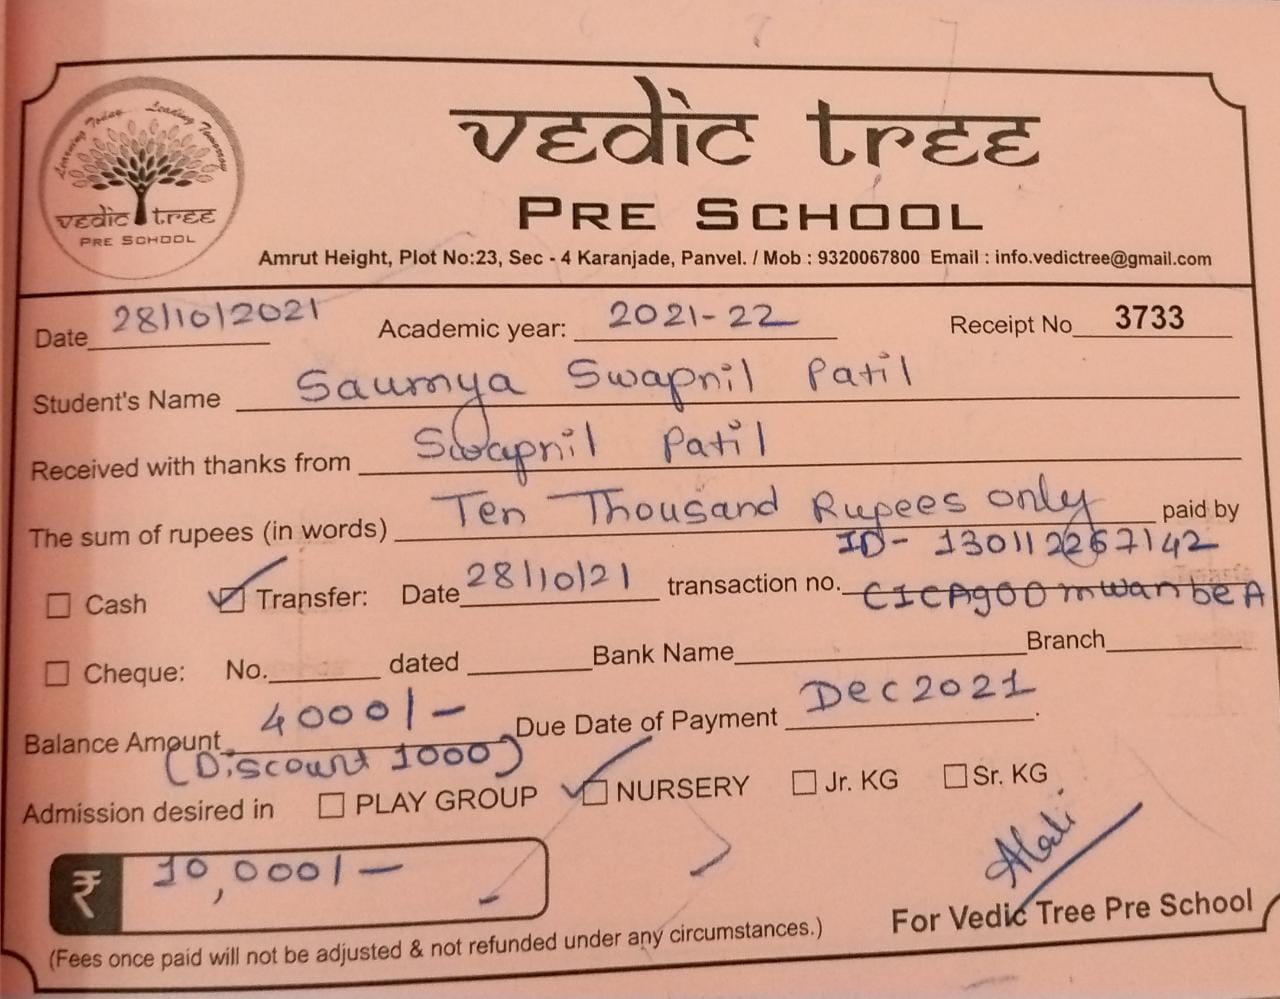 Learning Today... Leading Tomorrow
vedic tree
PRE SCHOOL
vedic tree
PRE SCHOOL
Amrut Height, Plot No:23, Sec - 4 Karanjade, Panvel. / Mob : 9320067800 Email : info.vedictree@gmail.com
Date 28/10/2021 Academic year: 2021-22 Receipt No 3733
Student's Name Saumya Swapnil Patil
Received with thanks from Swapnil Patil
The sum of rupees (in words) Ten Thousand Rupees only paid by
ID- 130112267142
Cash Transfer: Date 28/10/21 transaction no.
Cheque: No. dated Bank Name Branch
Balance Amount 4000/- Due Date of Payment Dec 2021
(Discount 1000)
Admission desired in PLAY GROUP NURSERY Jr. KG Sr. KG
₹ 10,000/-
For Vedic Tree Pre School
(Fees once paid will not be adjusted & not refunded under any circumstances.)